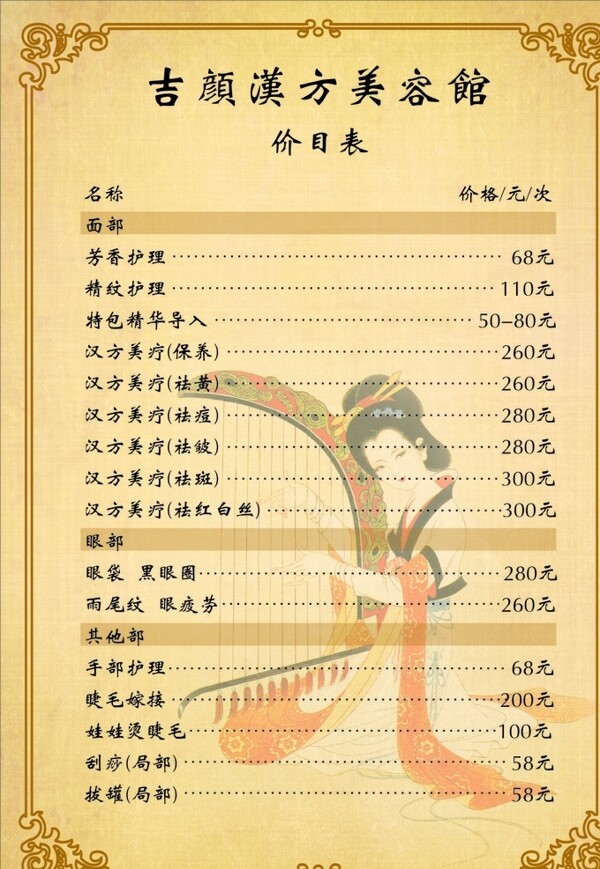 吉顔漢方美容館
价目表
名称 价格/元/次
面部
芳香护理 68元
精纹护理 110元
特包精华导入 50-80元
汉方美疗(保养) 260元
汉方美疗(祛黄) 260元
汉方美疗(祛痘) 280元
汉方美疗(祛皱) 280元
汉方美疗(祛斑) 300元
汉方美疗(祛红白丝) 300元
眼部
眼袋 黑眼圈 280元
雨尾纹 眼疲劳 260元
其他部
手部护理 68元
睫毛嫁接 200元
娃娃烫睫毛 100元
刮痧(局部) 58元
拔罐(局部) 58元